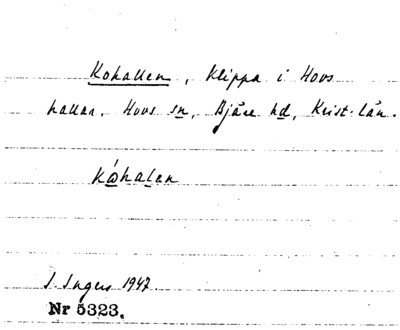 Kohallen, klippa i Hovs
hallar, Hovs sn, Bjäre hd, Krist. län.
I. Ingers 1947.
Nr 5323.